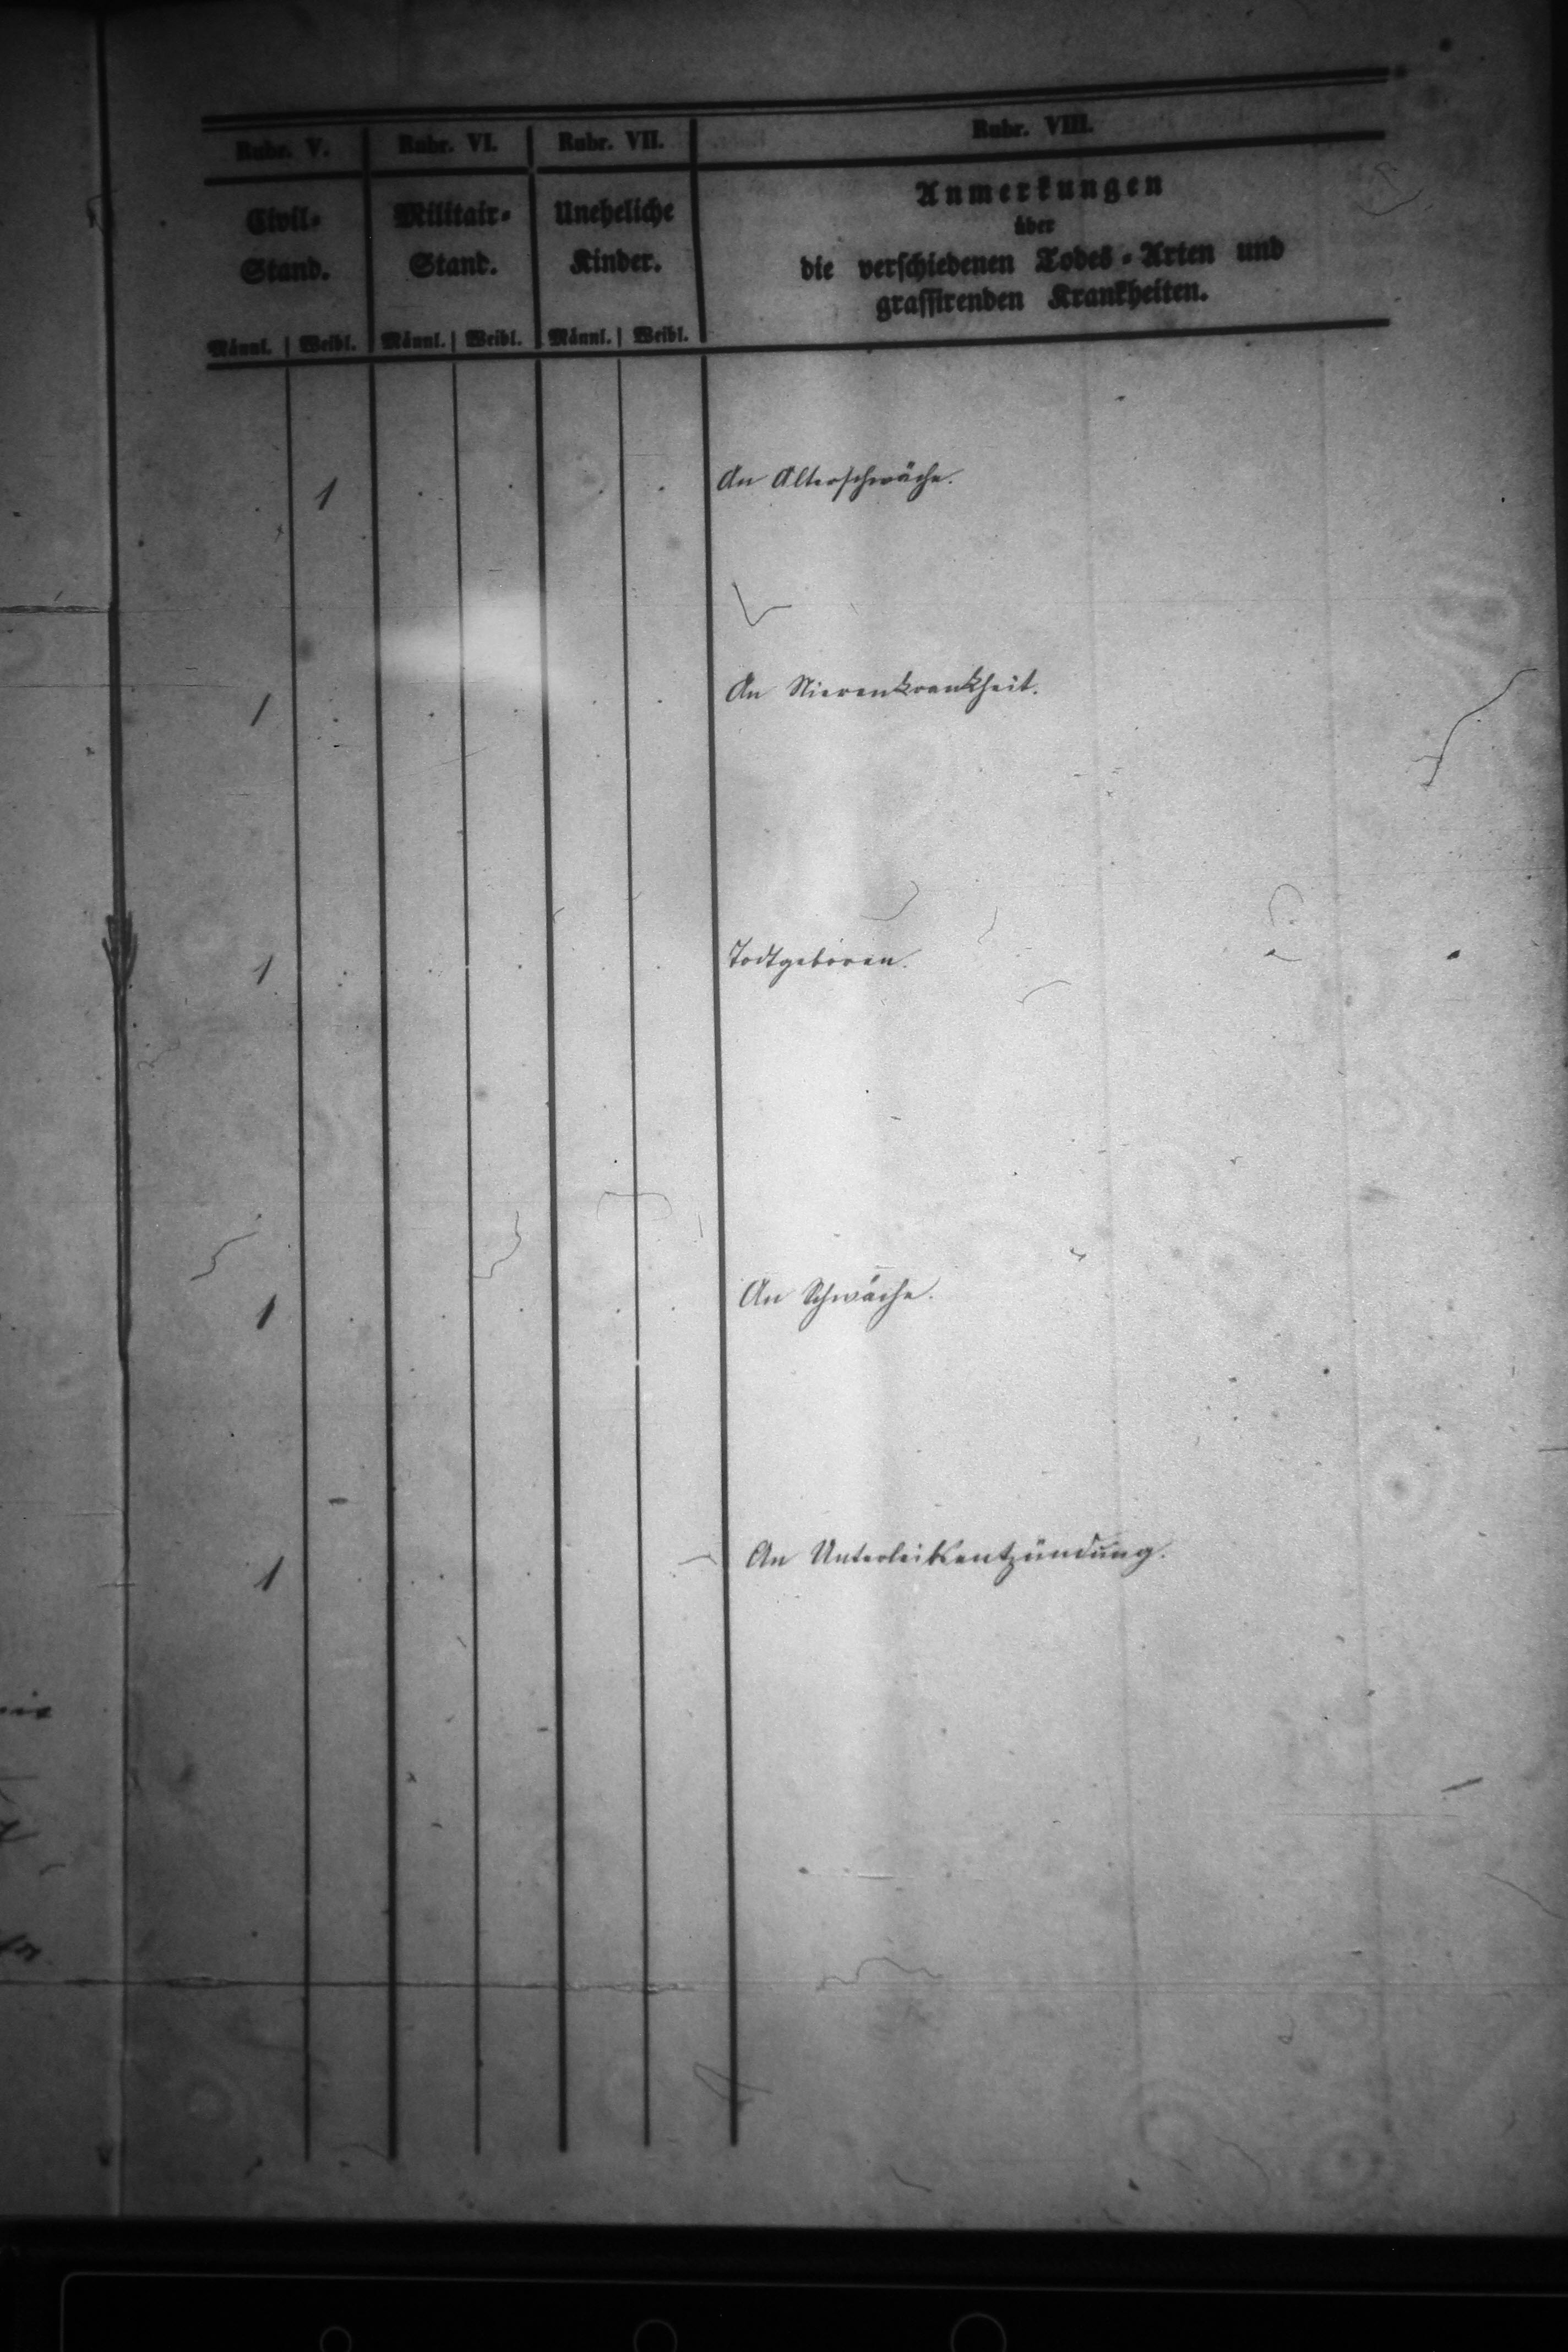 Rubr. V. Rubr. VI. Rubr. VII. Rubr. VIII.
Civil- Militair- Uneheliche Anmerkungen
Stand. Stand. Kinder. über
die verschiedenen Todes-Arten und
grassirenden Krankheiten.
Männl. Weibl. Männl. Weibl. Männl. Weibl.
1 An Alterschwäche.
1 An Nierenkrankheit.
1 Todtgeboren.
1 An Schwäche.
1 An Unterleibsentzündung.